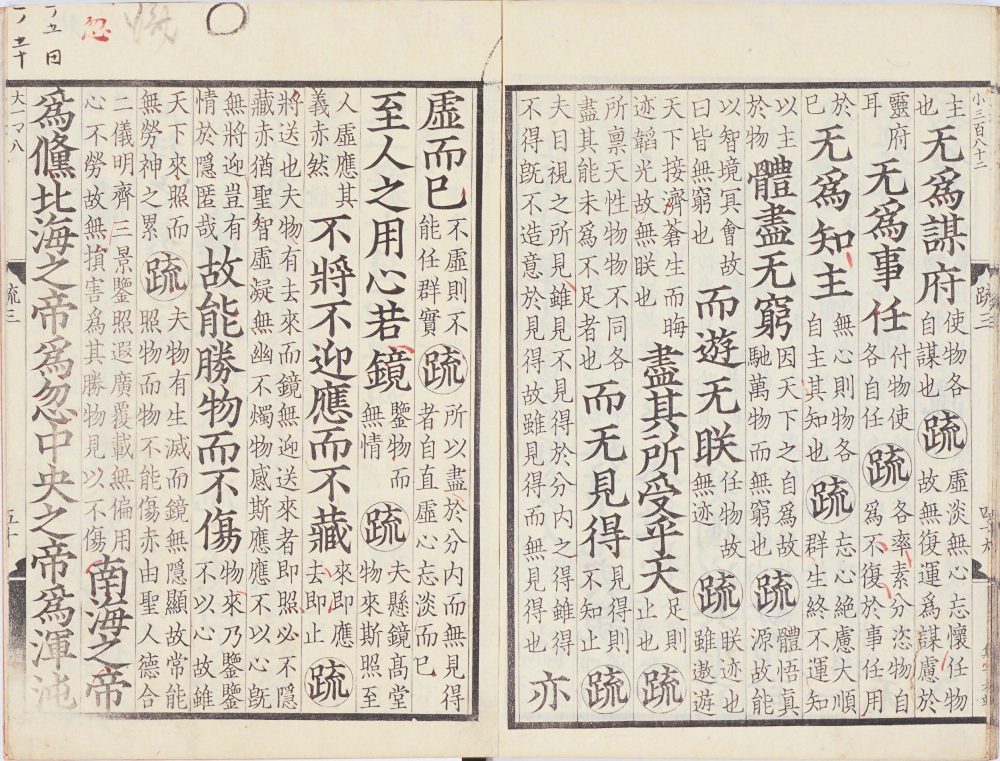 小三百八十二
主也无爲謀府使物各自謀也疏虛淡無心忘懷任物故無復運爲謀慮於
靈府耳无爲事任付物使各自任疏各率素分恣物自爲不復於事任用
於已无爲知主無心則物各自主其知也疏忘心絕慮大順群生終不運知
以主於物體盡无窮因天下之自爲故馳萬物而無窮也疏體悟真源故能
以智境冥會故曰皆無窮也而遊无眹任物故無迹疏眹迹也雖遨遊
天下接濟蒼生而晦迹韜光故無眹也盡其所受乎天足則止也疏
所禀天性物物不同各盡其能未爲不足者也而无見得見得則不知止疏
夫目視之所見雖見不見得於分内之得雖得不得旣不造意於見得故雖見得而無見得也亦
虛而已不虛則不能任群實疏所以盡於分内而無見得者自直虛心忘淡而已
至人之用心若鏡鑒物而無情疏夫懸鏡髙堂物來斯照至
人虛應其義亦然不將不迎應而不藏來即應去即止疏
將送也夫物有去來而鏡無迎送來者即照必不隱藏亦猶聖智虛凝無幽不燭物感斯應應不以心旣
無將迎豈有情於隱匿哉故能勝物而不傷物來乃鑒鑒不以心故雖
天下來照而無勞神之累疏夫物有生滅而鏡無隱顯故常能照物而物不能傷亦由聖人德合
二儀明齊三景鑒照遐廣覆載無偏用心不勞故無損害爲其勝物見以不傷南海之帝
爲儵北海之帝爲忽中央之帝爲渾沌
疏三
五十
忽